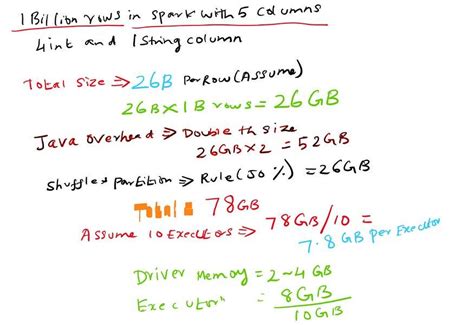 1 Billion rows in spark with 5 columns
4 int and 1 String column
Total size ⇒ 26B Per Row (Assume)
26B × 1B rows = 26 GB
Java overhead ⇒ Double the size
26GB × 2 = 52GB
Shuffle & Partition ⇒ Rule (50 %) = 26GB
Total = 78GB
Assume 10 Executors ⇒ 78GB/10 =
7.8 GB per Executor
Driver Memory = 2~4 GB
Executor = 8GB
10GB